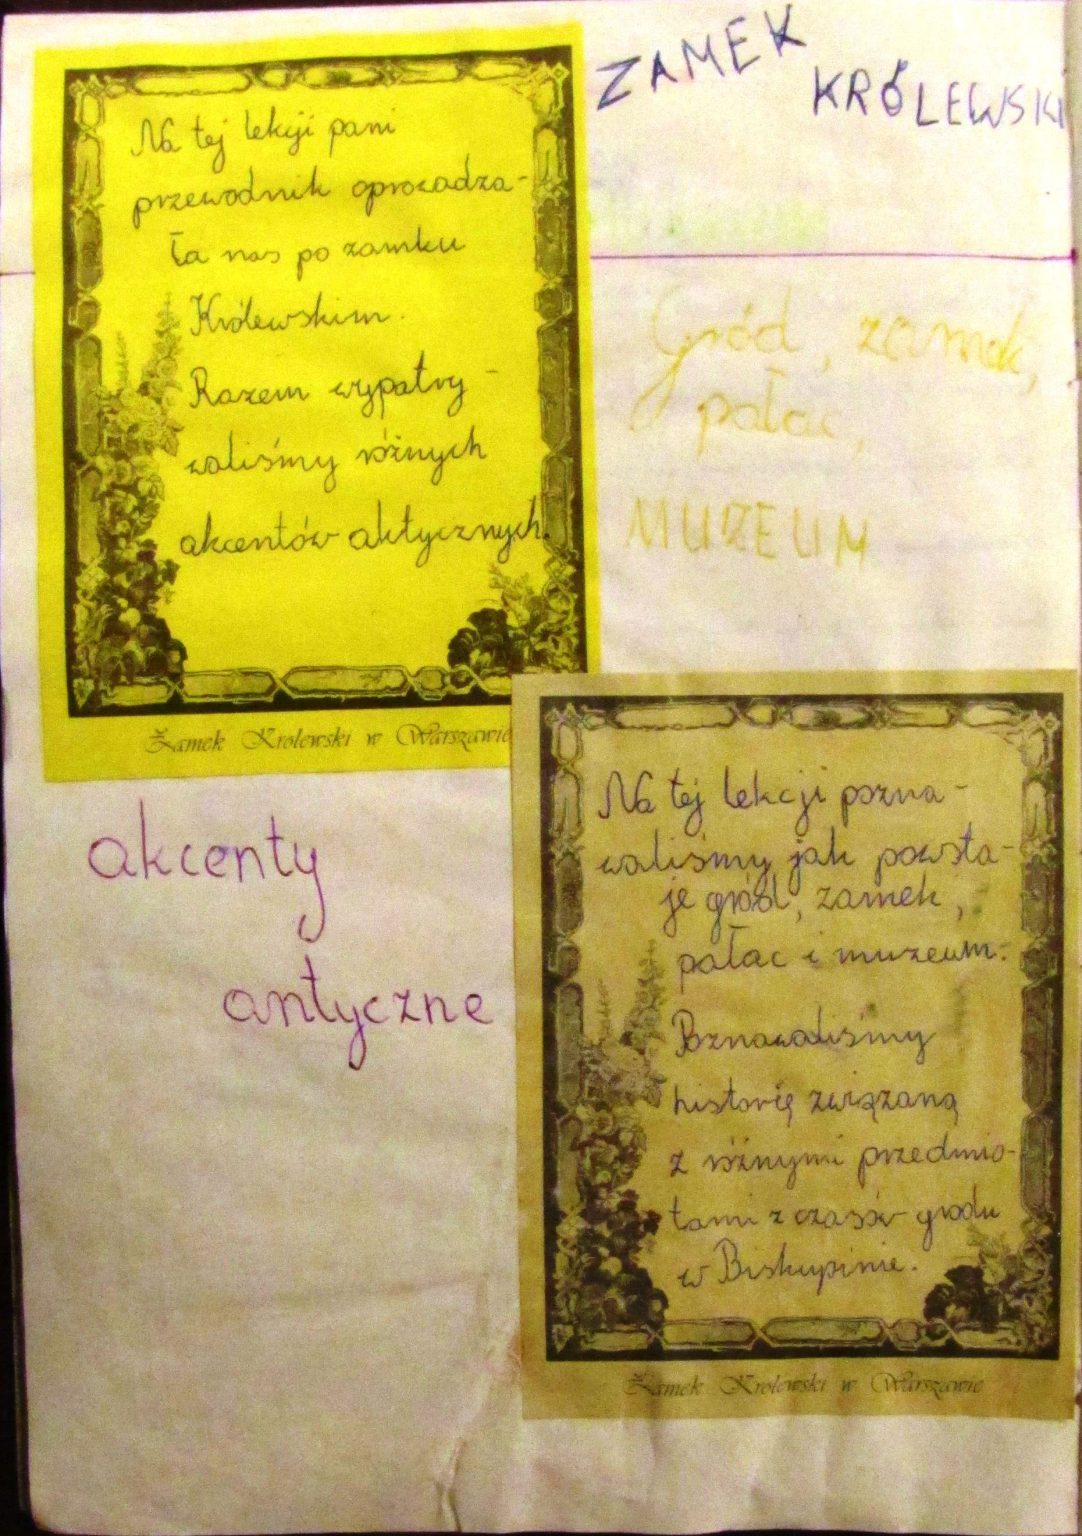 ZAMEK
KRÓLEWSKI
Na tej lekcji pani
przewodnik oprowadza-
ła nas po zamku
Królewskim.
Razem wypatry-
waliśmy różnych
akcentów aktycznych.
Żamek Krolewski w Warszawie
Gród, zamek,
pałac,
MUZEUM
akcenty
antyczne
Na tej lekcji pozna-
waliśmy jak powsta-
je gród, zamek,
pałac i muzeum.
Poznawaliśmy
historię związaną
z różnymi przedmio-
tami z czasów grodu
w Biskupinie.
Żamek Krolewski w Warszawie